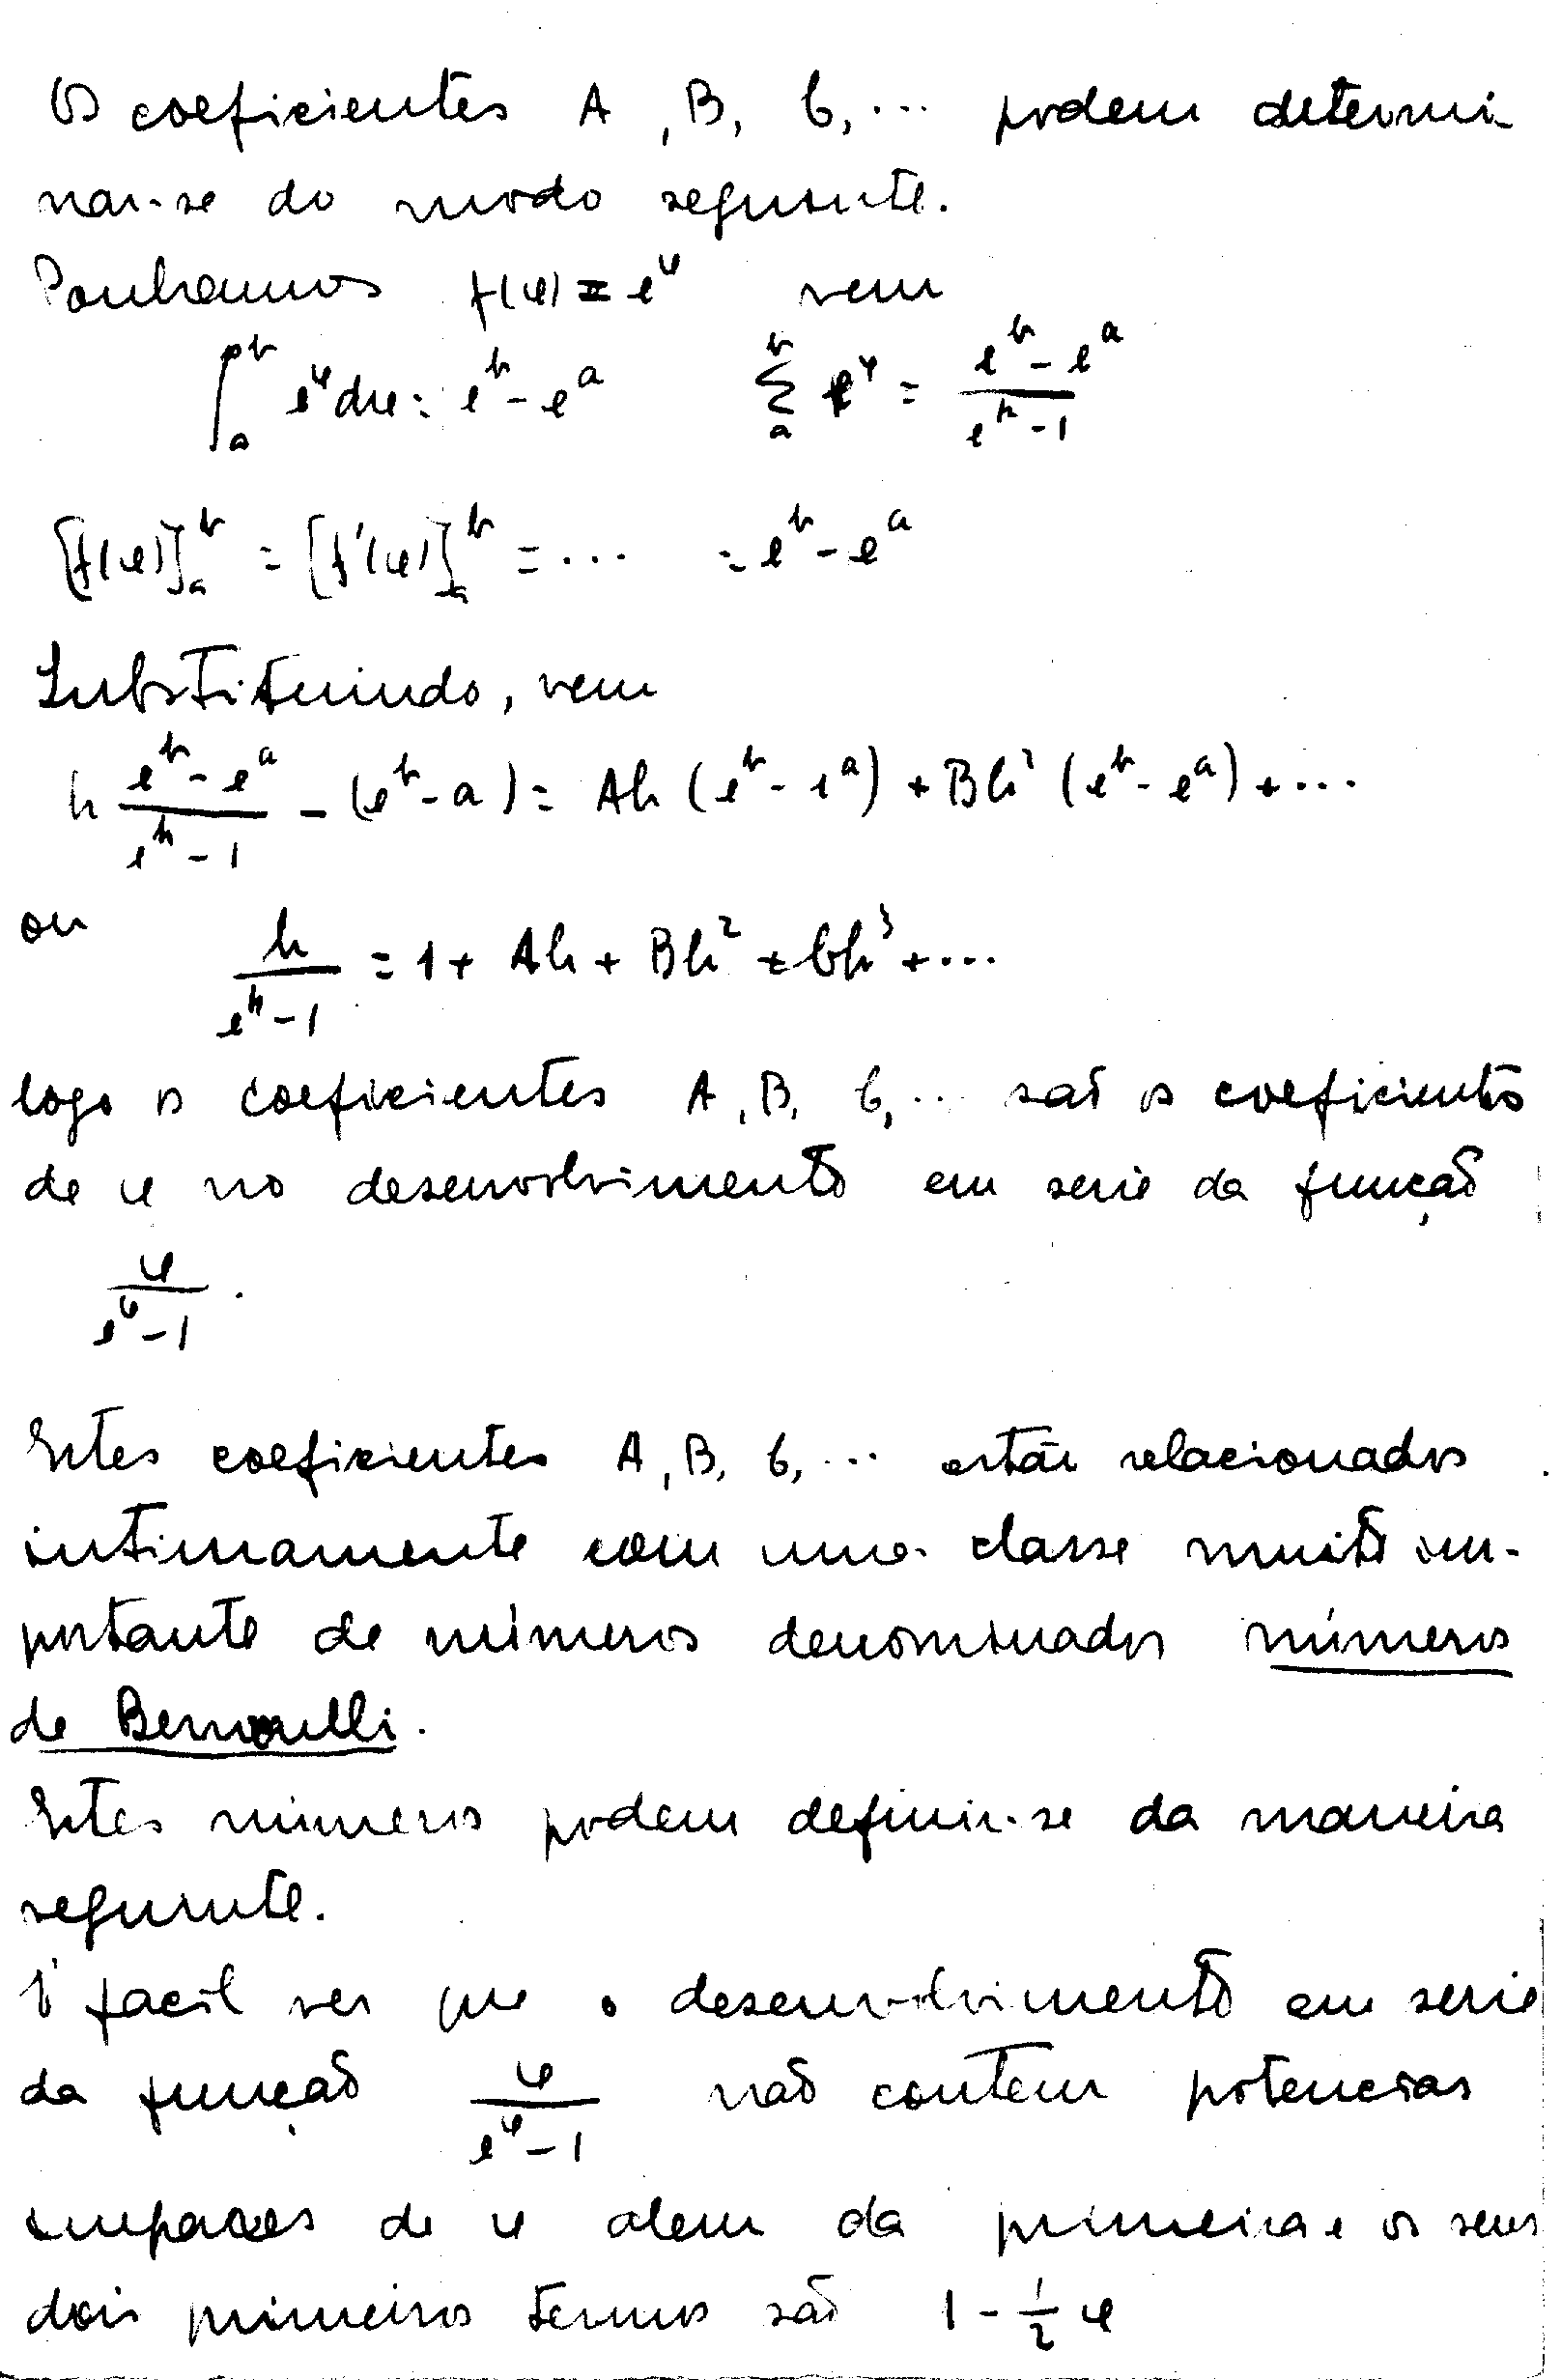 Os coeficientes A, B, C, ... podem determi-
nar-se do modo seguinte.
Ponhamos f(x) = e^x vem
∫_a^b e^x dx = e^b - e^a   Σ_a^b e^x = (e^b - e^a)/(e^h - 1)
[f(x)]_a^b = [f'(x)]_a^b = ... = e^b - e^a
Substituindo, vem
h (e^b - e^a)/(e^h - 1) - (e^b - a) = Ah (e^b - e^a) + Bh² (e^b - e^a) + ...
ou h/(e^h - 1) = 1 + Ah + Bh² + Ch³ + ...
logo os coeficientes A, B, C, ... são os coeficientes
de x no desenvolvimento em serie da função
x/(e^x - 1).
Estes coeficientes A, B, C, ... estão relacionados
intimamente com uma classe muito im-
portante de números denominados números
de Bernoulli.
Estes números podem definir-se da maneira
seguinte.
É facil ver que o desenvolvimento em serie
da função x/(e^x - 1) não contem potencias
impares de x alem da primeira e os seus
dois primeiros termos são 1 - 1/2 x